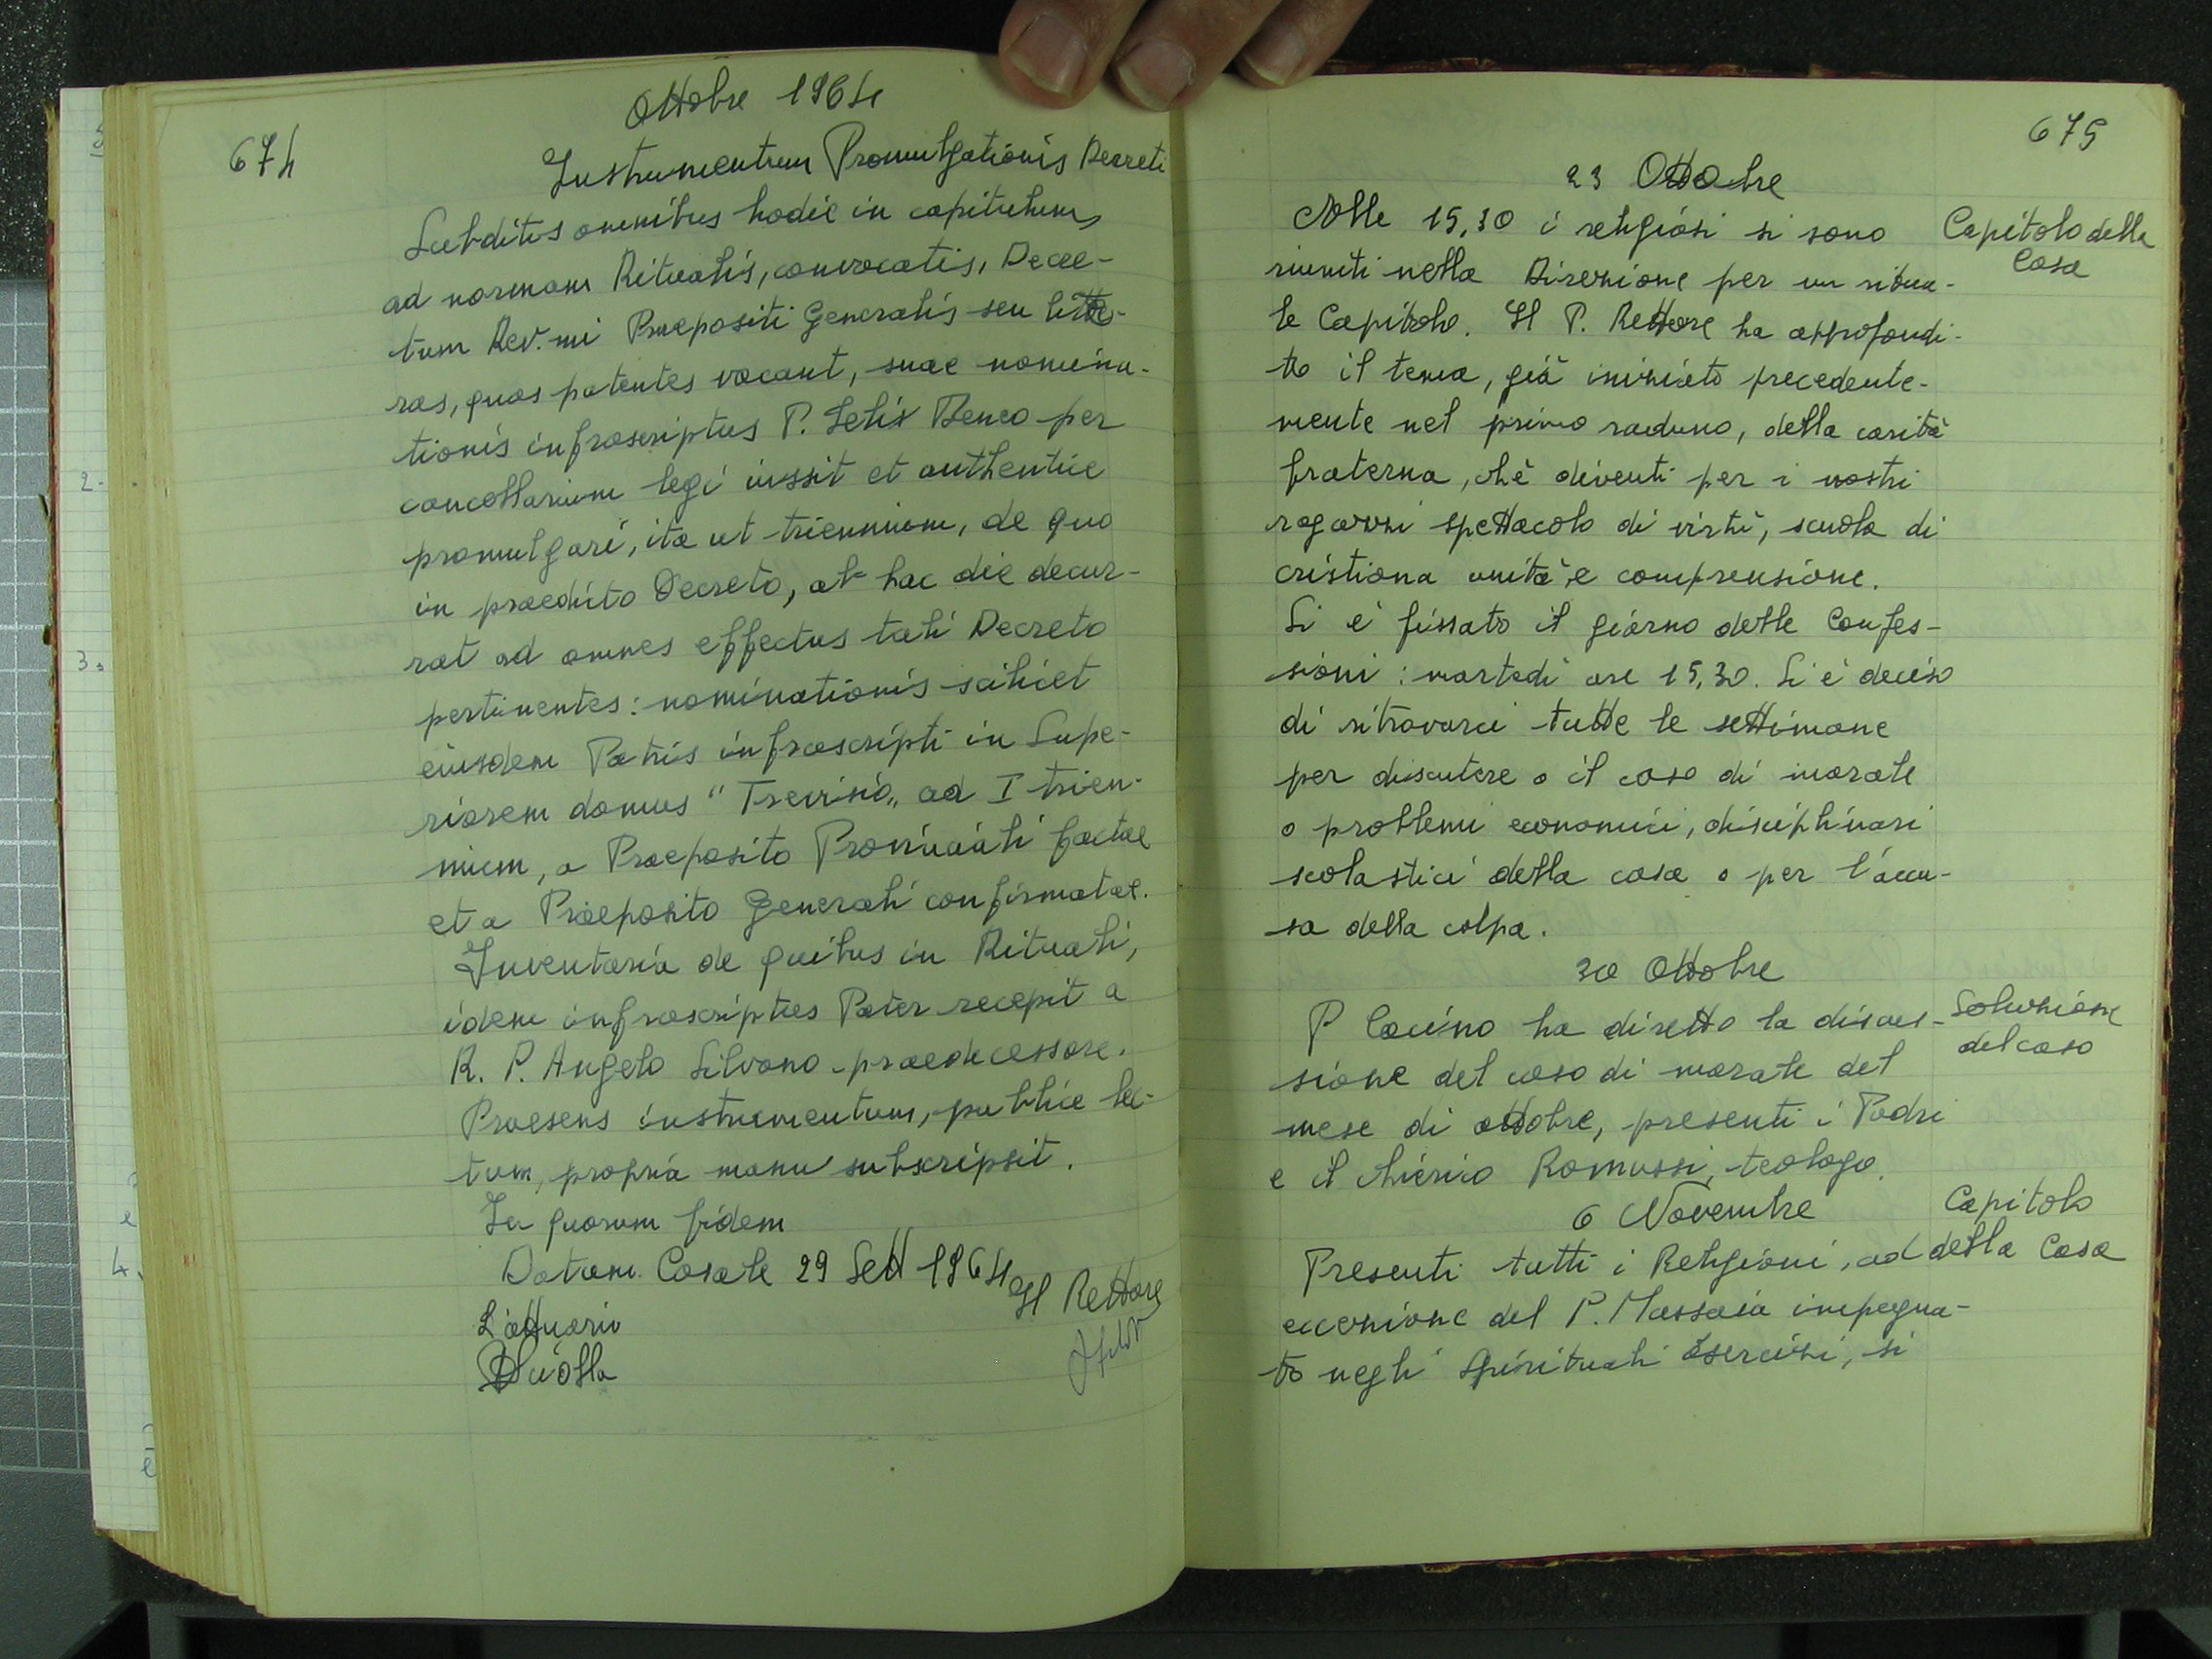 Ottobre 1964
674
Instrumentum Promulgationis Decreti
Subditis omnibus hodie in capitulum,
ad normam Ritualis, convocatis, Decre-
tum Rev.mi Praepositi Generalis seu litte-
ras, quas patentes vocant, suae nomina-
tionis infrascriptus P. Felix Beneo per
cancellarium legi iussit et authentice
promulgari, ita ut triennium, de quo
in praedicto Decreto, ab hac die decur-
rat ad omnes effectus tali Decreto
pertinentes: nominationis scilicet
eiusdem Patris infrascripti in Supe-
riorem domus "Treviso" ad I trien-
nium, a Praeposito Provinciali factae
et a Praeposito Generali confirmatae.
Inventaria de quibus in Rituali,
idem infrascriptus Pater recepit a
R. P. Angelo Silvano praedecessore.
Praesens instrumentum, publice lec-
tum, propria manu subscripsit.
In quorum fidem
Datum Casale 29 Sett 1964
Il Rettore
L'attuario
675
23 Ottobre
Alle 15,30 i religiosi si sono
riuniti nella Direzione per un ritua-
le Capitolo. Il P. Rettore ha approfondi-
to il tema, già iniziato precedente-
mente nel primo raduno, della carità
fraterna, chè diventi per i nostri
ragazzi spettacolo di virtù, scuola di
cristiana unità e comprensione.
Si è fissato il giorno delle Confes-
sioni: martedì ore 15,30. Si è deciso
di ritrovarci tutte le settimane
per discutere o il caso di morale
o problemi economici, disciplinari
scolastici della casa o per l'accu-
sa della colpa.
Capitolo della
Casa
30 Ottobre
P Cocino ha diretto la discus-
sione del caso di morale del
mese di ottobre, presenti i Padri
e il chierico Romussi, teologo.
Soluzione
del caso
6 Novembre
Presenti tutti i Religiosi, ad
eccezione del P. Massaia impegna-
to negli Spirituali Esercizi, si
Capitolo
della Casa